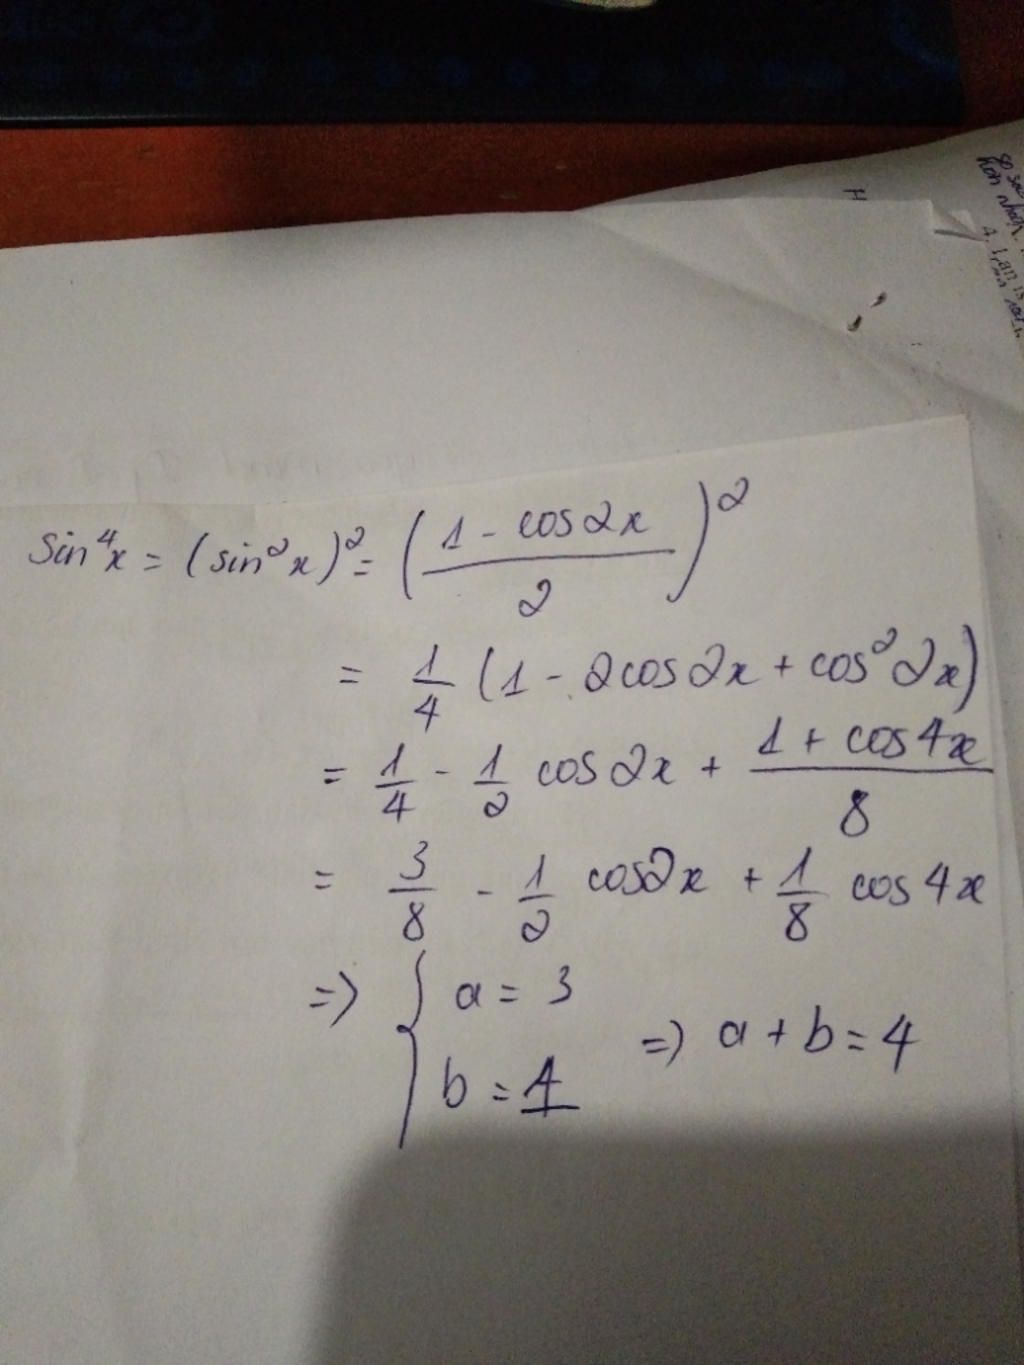 sin⁴x = (sin²x)² = ((1 - cos2x)/2)²
= 1/4 (1 - 2cos2x + cos²2x)
= 1/4 - 1/2 cos2x + (1 + cos4x)/8
= 3/8 - 1/2 cos2x + 1/8 cos4x
=> { a = 3
b = 1
=> a + b = 4